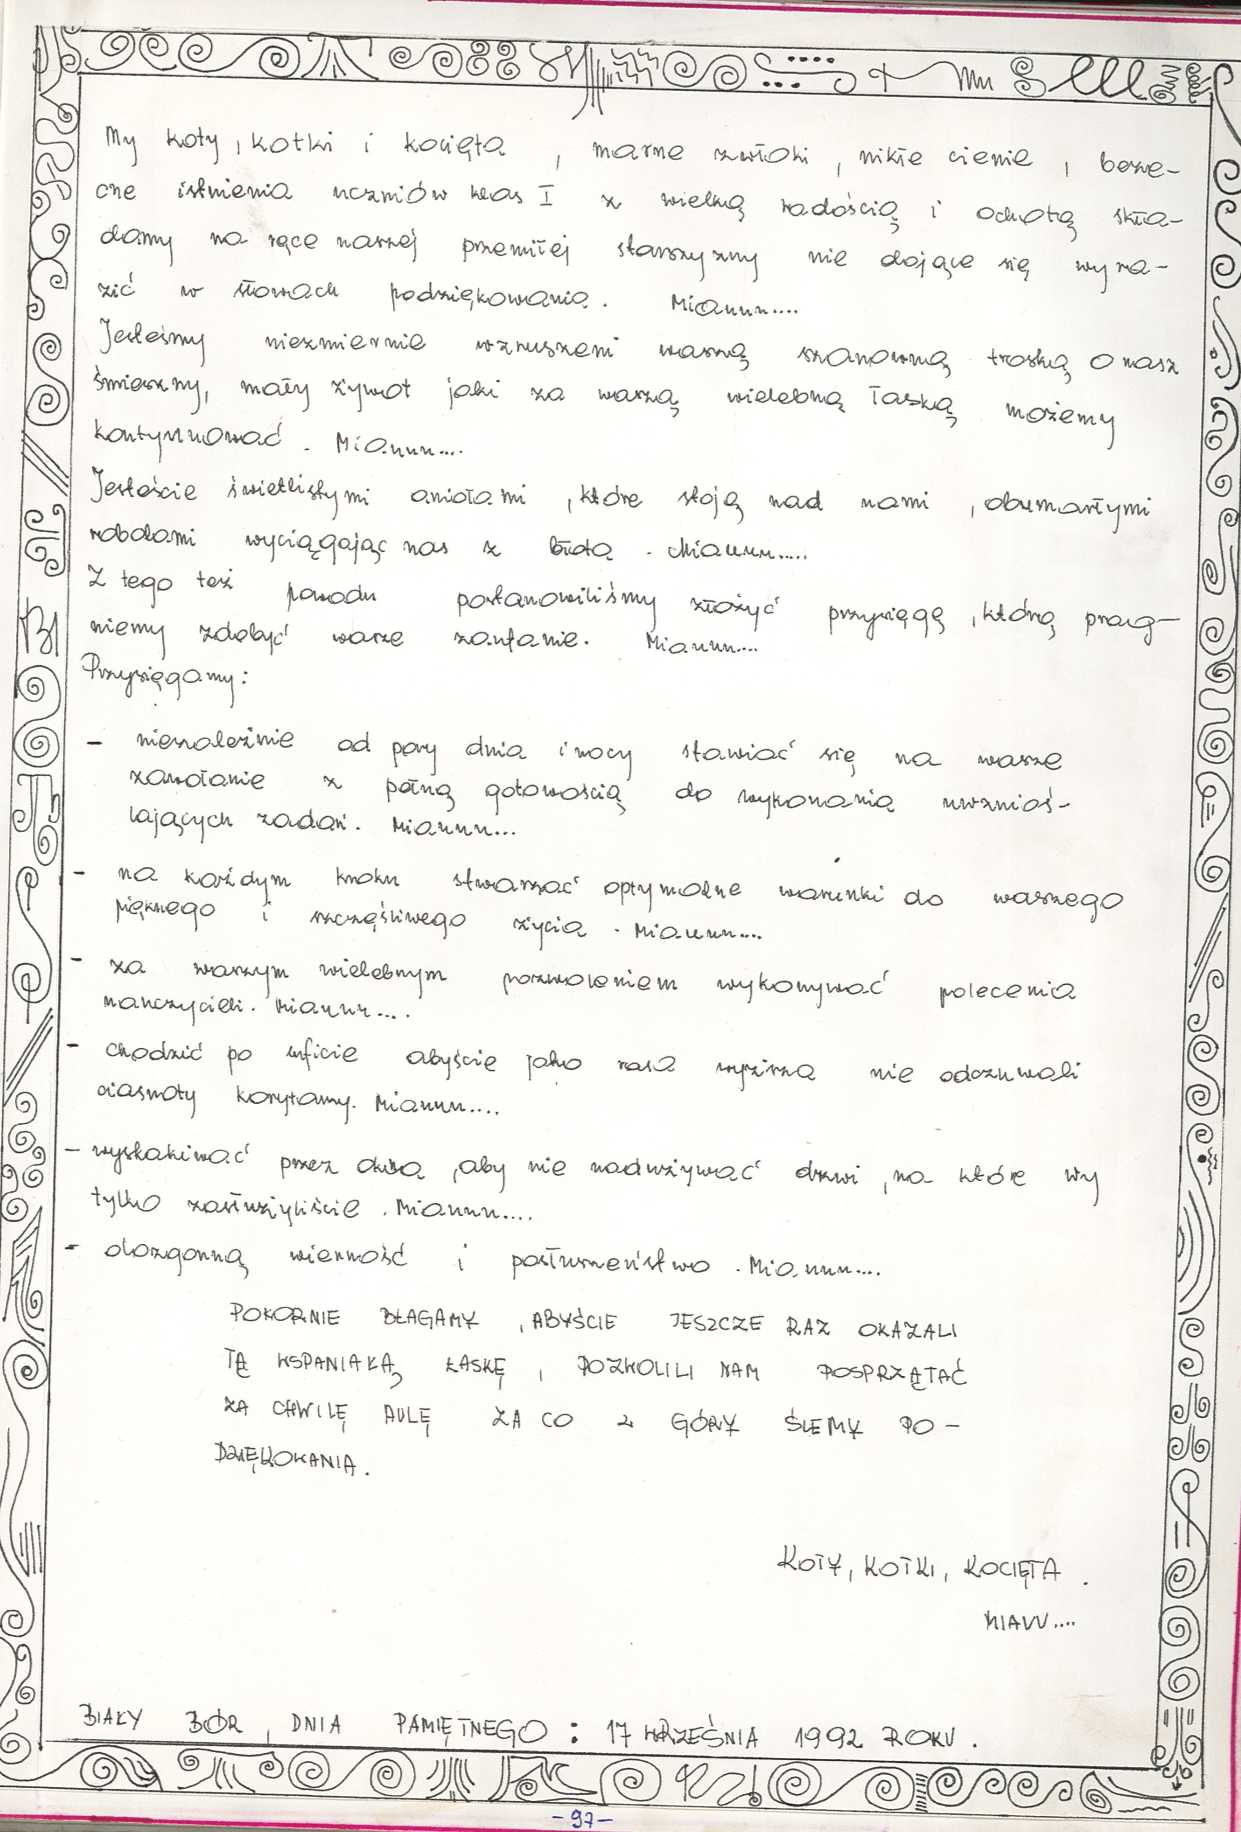 My koty, kotki i kocięta, marne zwłoki, nikłe cienie, bezve-
cne istnienia uczniów klas I z wielką radością i ochotą skła-
damy na ręce naszej przemiłej starszyzny nie dające się wyra-
zić w słowach podziękowania. Miauuu....
Jesteśmy niezmiernie wzruszeni waszą szanowną troską o nasz
śmieszny, mały żywot jaki za waszą wielebną łaską możemy
kontynuować. Miauuu....
Jesteście świetlistymi aniołami, które stoją nad nami, obumarłymi
robalami wyciągając nas z błota. Miauuu.....
Z tego też powodu postanowiliśmy złożyć przysięgę, którą prag-
niemy zdobyć wasze zaufanie. Miauuu....
Przysięgamy:
- niezależnie od pory dnia i nocy stawiać się na wasze
zawołanie z pełną gotowością do wykonania uwznioś-
lających zadań. Miauuu...
- na każdym kroku stwarzać optymalne warunki do waszego
pięknego i szczęśliwego życia. Miauuu....
- za waszym wielebnym pozwoleniem wykonywać polecenia
nauczycieli. Miauuu....
- chodzić po suficie abyście jako rasa wyższa nie odczuwali
ciasnoty korytarzy. Miauuu....
- wyskakiwać przez okna, aby nie nadużywać drzwi, na które wy
tylko zasłużyliście. Miauuu....
- dozgonną wierność i posłuszeństwo. Miauuu....
POKORNIE BŁAGAMY, ABYŚCIE JESZCZE RAZ OKAZALI
TĄ WSPANIAŁĄ ŁASKĘ, POZWOLILI NAM POSPRZĄTAĆ
ZA CHWILĘ AULĘ ZA CO Z GÓRY ŚLEMY PO-
DZIĘKOWANIA.
KOTY, KOTKI, KOCIĘTA.
MIAUU....
BIAŁY BÓR, DNIA PAMIĘTNEGO: 17 WRZEŚNIA 1992 ROKU.
-97-